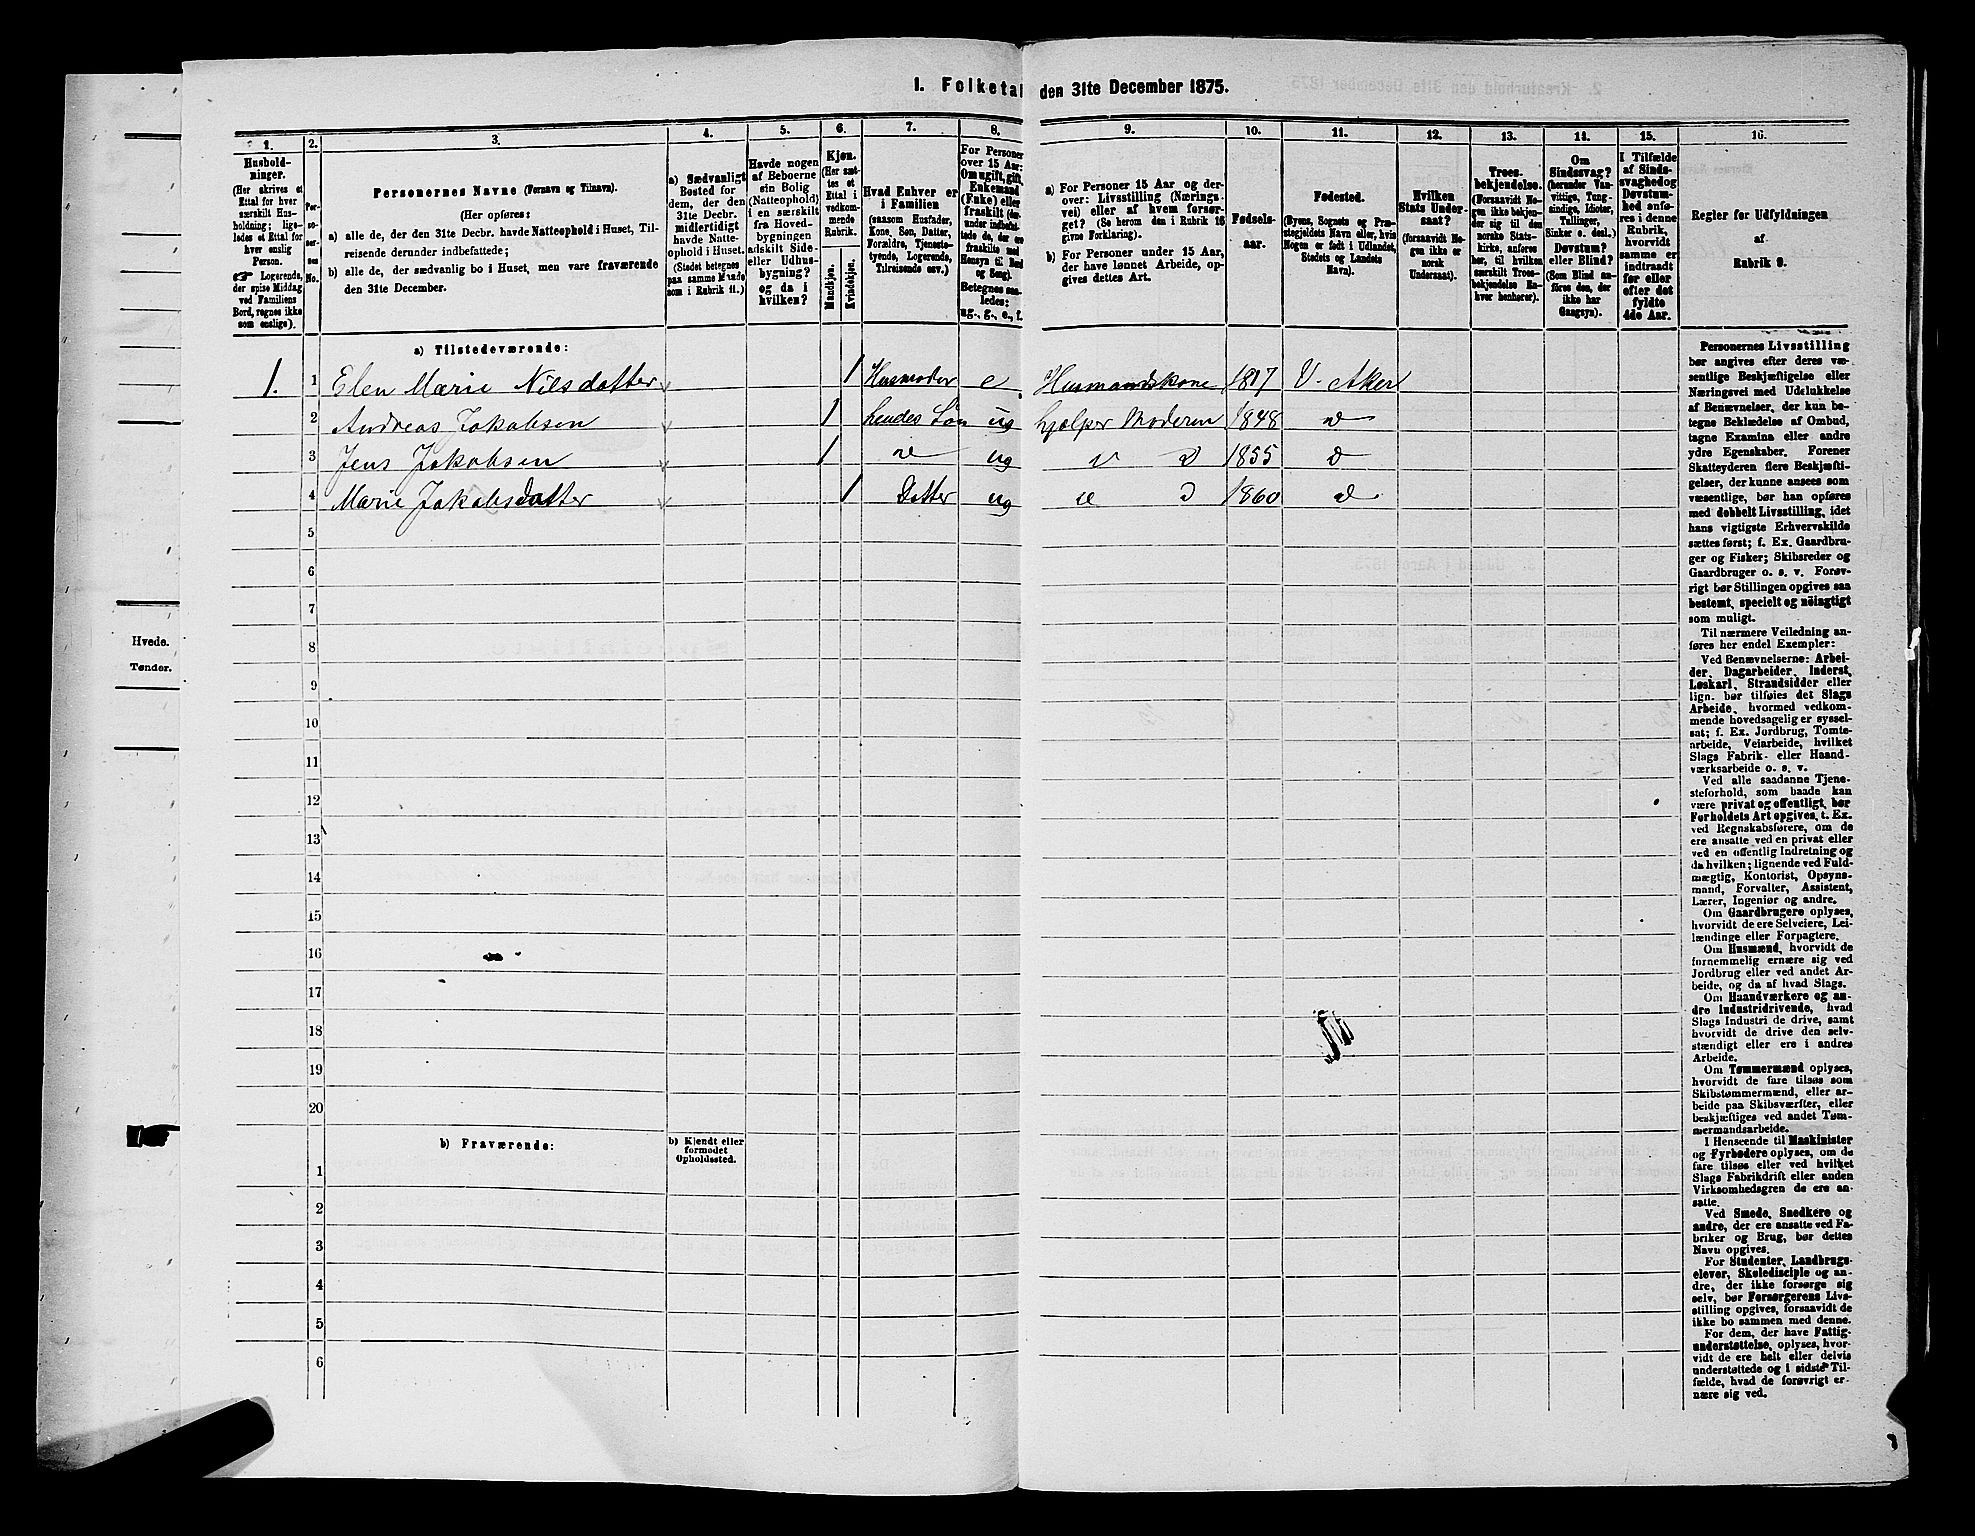 1. Folketal den 31te December 1875.
Hvede.
Tønder.
1.
Hushold-
ninger.
(Her skrives et
Ettal for hver
særskilt Hus-
holdning; lige-
ledes et Ettal for
hver enslig
Person.
☛ Logerende,
der spise Middag
ved Familiens
Bord, regnes ikke
som enslige).
2.
Per-
soner-
nes
No.
3.
Personernes Navne (Fornavn og Tilnavn).
(Her opføres:
a) alle de, der den 31te Decbr. havde Natteophold i Huset, Til-
reisende derunder indbefattede;
b) alle de, der sædvanlig bo i Huset, men vare fraværende
den 31te December.
4.
a) Sædvanligt
Bosted for
dem, der den
31te Decbr.
midlertidigt
havde Natte-
ophold i Huset.
(Stedet betegnes
paa samme Maade
som i Rubrik 11.)
5.
Havde nogen
af Beboerne
sin Bolig
(Natteophold)
i en særskilt
fra Hoved-
bygningen
adskilt Side-
eller Udhus-
bygning?
og da i
hvilken?
6.
Kjøn.
(Her sæt-
tes et
Ettal i
vedkom-
mende
Rubrik.
Mandkjøn.
Kvindekjøn.
7.
Hvad Enhver er
i Familien
(saasom Husfader,
Kone, Søn, Datter,
Forældre, Tjeneste-
tyende, Logerende,
Tilreisende osv.)
8.
For Personer
over 15 Aar:
Om ugift, gift,
Enkemand
(Enke) eller
fraskilt (der-
under indbefat-
tede de, der ere
fraskilte med
Hensyn til Bord
og Seng).
Betegnes saa-
ledes:
ug., g., e., f.
9.
a) For Personer 15 Aar og der-
over: Livsstilling (Nærings-
vei) eller af hvem forsør-
get? (Se herom den i Rubrik 16
givne Forklaring).
b) For Personer under 15 Aar,
der have lønnet Arbeide, op-
gives dettes Art.
10.
Fødsels-
aar.
11.
Fødested.
(Byens, Sognets og Præ-
stegjeldets Navn eller, hvis
Nogen er født i Udlandet,
Stedets og Landets
Navn).
12.
Hvilken
Stats Under-
saat?
(forsaavidt No-
gen ikke er
norsk
Undersaat).
13.
Troes-
bekjendelse.
(Forsaavidt No-
gen ikke bekjen-
der sig til den
norske Stats-
kirke, anføres
her, til hvilken
særskilt Troes-
bekjendelse En-
hver henhører).
14.
Om
Sindssvag?
(herunder Van-
vittige, Tung-
sindige, Idioter,
Tullinger,
Sinker o. desl.)
Døvstum?
eller Blind?
(Som Blind an-
føres den, der
ikke har
Gangsyn).
15.
I Tilfælde
af Sinds-
svaghed og
Døvstum-
hed anfø-
res i denne
Rubrik,
hvorvidt
samme er
indtraadt
før eller
efter det
fyldte
4de Aar.
16.
Regler for Udfyldningen
af
Rubrik 9.
a) Tilstedeværende:
1. 1 Elen Marie Nilsdatter 1 Husmoder e Husmandskone 1817 V. Aker
2 Andreas Jakobsen 1 hendes Søn ug hjælper Moderen 1848 d
3 Jens Jakobsen 1 d ug d 1855 d
4 Marie Jakobsdatter 1 Datter ug d 1860 d
5
6
7
8
9
10
11
12
13
14
15
16
17
18
19
20
b) Fraværende:
b) Kjendt eller
formodet
Opholdssted.
1
2
3
4
5
6
Personernes Livsstilling
bør angives efter deres væ-
sentlige Beskjæftigelse eller
Næringsvei med Udelukkelse
af Benævnelser, der kun be-
tegne Beklædelse af Ombud,
tagne Examina eller andre
ydre Egenskaber. Forener
Skatteyderen flere Beskjæfti-
gelser, der kunne ansees som
væsentlige, bør han opføres
med dobbelt Livsstilling, idet
hans vigtigste Erhvervskilde
sættes først; f. Ex. Gaardbru-
ger og Fisker; Skibsreder og
Gaardbruger o. s. v. Forøv-
rigt bør Stillingen opgives saa
bestemt, specielt og nøiagtigt
som muligt.
Til nærmere Veiledning an-
føres her endel Exempler:
Ved Benævnelserne: Arbei-
der, Dagarbeider, Inderst,
Løskarl, Strandsidder eller
lign. bør tilføies det Slags
Arbeide, hvormed vedkom-
mende hovedsagelig er syssel-
sat; f. Ex. Jordbrug, Tomte-
arbeide, Veiarbeide, hvilket
Slags Fabrik- eller Haand-
værksarbeide o. s. v.
Ved alle saadanne Tjene-
steforhold, som baade kan
være privat og offentligt, bør
Forholdets Art opgives, t. Ex.
ved Regnskabsførere, om de
ere ansatte ved en privat eller
ved en offentlig Indretning og
da hvilken; lignende ved Fuld-
mægtig, Kontorist, Opsyns-
mand, Forvalter, Assistent,
Lærer, Ingeniør og andre.
Om Gaardbrugere oplyses,
hvorvidt de ere Selveiere, Lei-
lændinge eller Forpagtere.
Om Husmænd, hvorvidt de
fornemmelig ernære sig ved
Jordbrug eller ved andet Ar-
beide, og da af hvad Slags.
Om Haandværkere og an-
dre industridrivende, hvad
Slags Industri de drive, samt
hvorvidt de drive den selv-
stændigt eller ere i andres
Arbeide.
Om Tømmermænd oplyses,
hvorvidt de fare tilsøs som
Skibstømmermænd, eller ar-
beide paa Skibsværfter, eller
beskjæftiges ved andet Tøm-
mermandsarbeide.
I Henseende til Maskinister
og Fyrbødere oplyses, om de
fare tilsøs eller ved hvilket
Slags Fabrikdrift eller anden
Virksomhedsgren de ere an-
satte.
Ved Smede, Snedkere og
andre, der ere ansatte ved Fa-
briker og Brug, bør dettes
Navn opgives.
For Studenter, Landbrugs-
elever, Skoledisciple og an-
dre, der ikke forsørge sig
selv, bør Forsørgerens Livs-
stilling opgives, forsaavidt de
ikke bo sammen med denne.
For dem, der have Fattig-
understøttelse, oplyses, hvor-
vidt de ere helt eller delvis
understøttede og i sidste Til-
fælde, hvad de forøvrigt er-
nære sig ved.